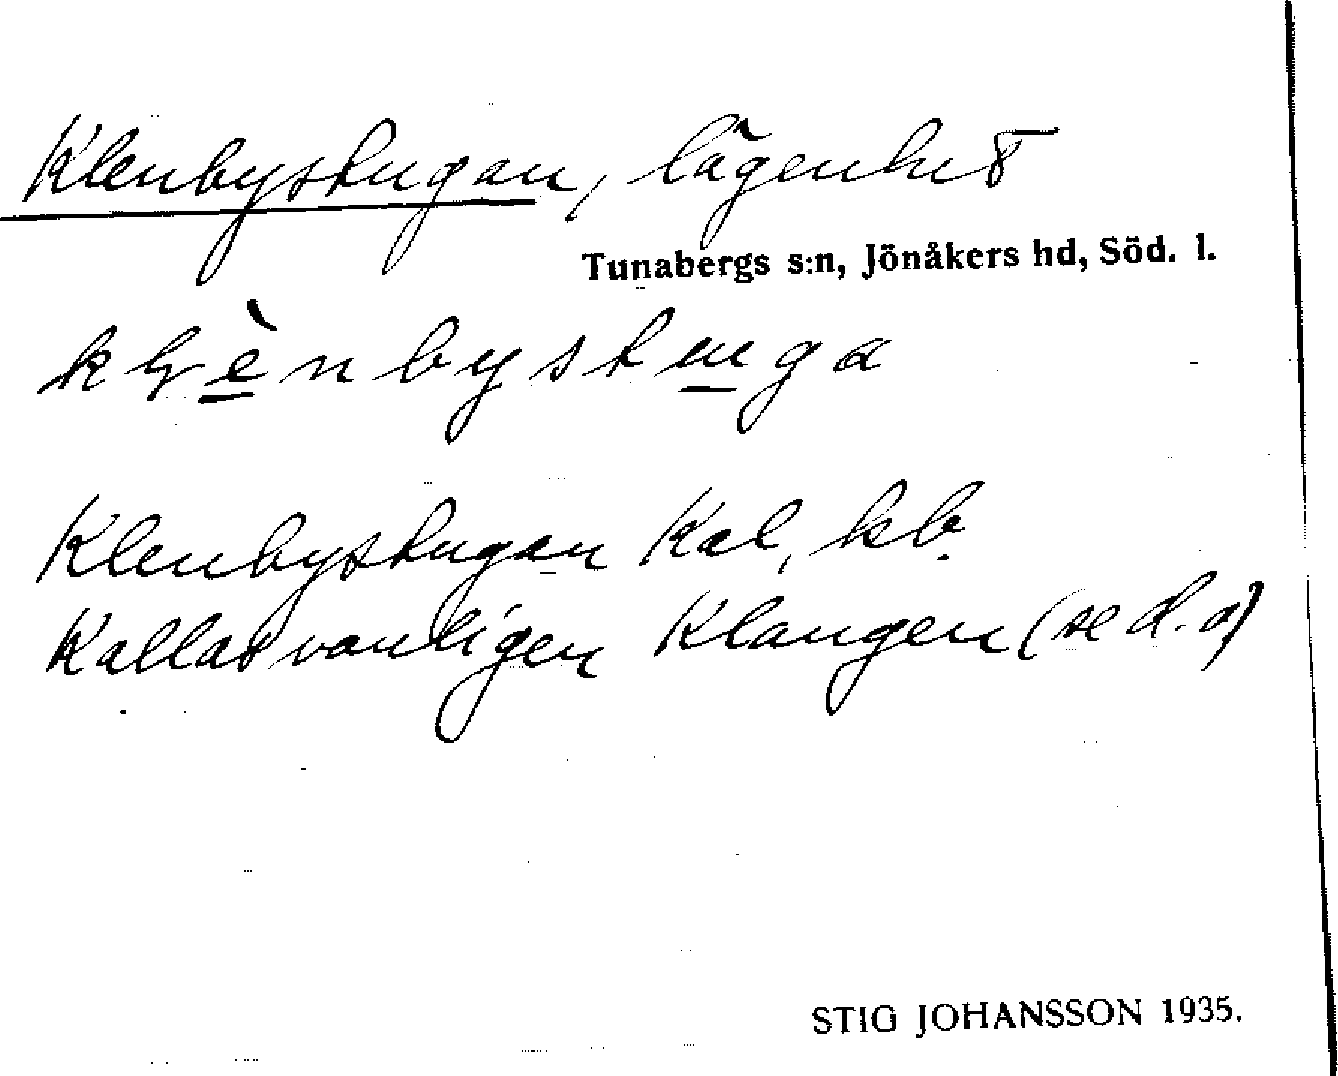 Klenbystugan, lägenhet
Tunabergs s:n, Jönåkers hd, Söd. l.
klènbystuga
Klenbystugan Kal, kb.
Kallas vanligen Klangen (se d.o)
STIG JOHANSSON 1935.